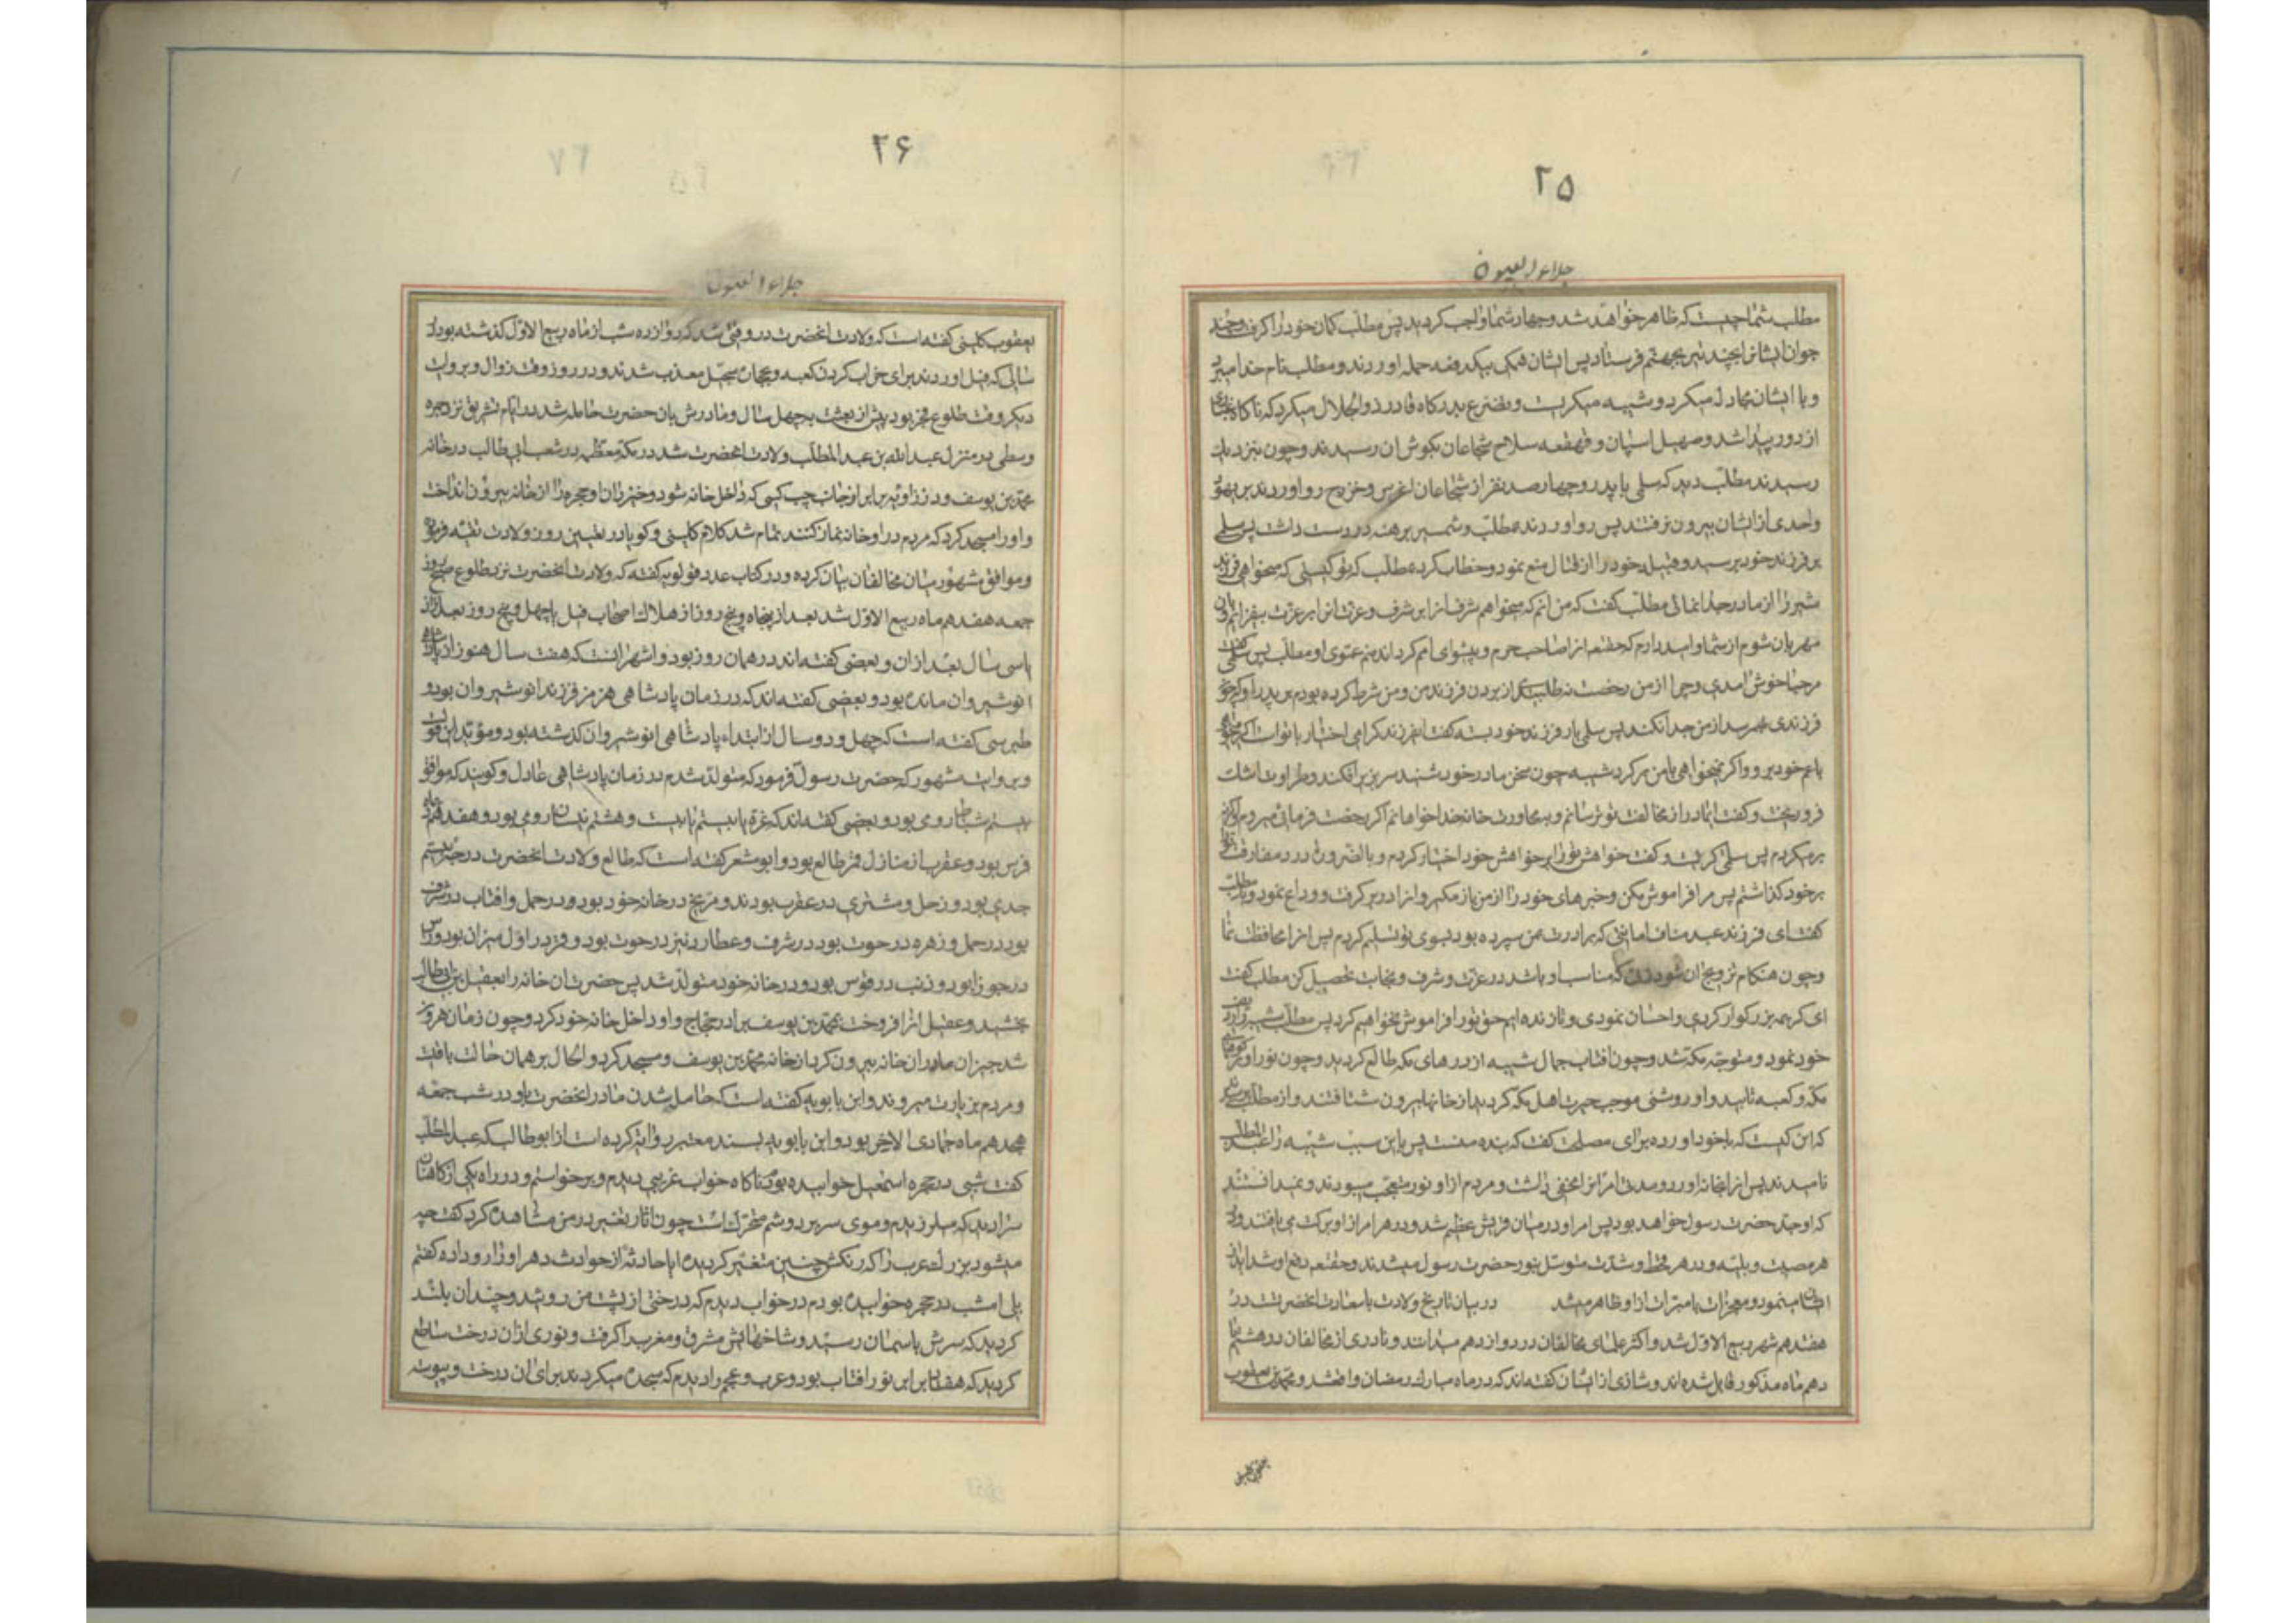 ۲۵
جلاء العیون
مطلب شما چیست که ظاهر خواهد شد و جهاد شما واجب کردید پس مطلب کمان خود را گرفت و چند
جوان ایشانرا بچند تیر بجهنم فرستاد پس ایشان همکی بیکدفعه حمله اوردند و مطلب نام خدا میبرد
و با ایشان مجادله میکرد و شیبه میکریست و تضرع بدرکاه قادر ذو الجلال میکرد که ناکاه غباری
از دور پیدا شد و صهیل اسپان و قهقعه سلاح شجاعان بکوش ان رسیدند و چون بنزدیک
رسیدند مطلب دید که سلمی با پدر و چهارصد نفر از شجاعان اغوس و خزرج رو اوردند بر یهود
واحدی از ایشان بیرون نرفتند پس رو اوردند بمطلب و شمسیر برهنه در دست داشت پس سلمی
بر فرزند خود برسید و قبیله خود را از قتال منع نمود و خطاب کرد بمطلب که تو کیستی که میخواهی فرزند
شیر را از مادر جدا نمائی مطلب کفت که من انم که میخواهم شرف انرا بر شرف و عزت انرا بر عزت بیفزایم و
مهربان شوم از شما و امید دارم که حقتعه انرا صاحب حرم و پیشوای امم کرداند منم عموی او مطلب پس سلمی کفت
مرحبا خوش امدی و چرا از من رخصت نه طلبیدی از بردن فرزند من و من شرط کرده بودم بر پدر او که چون
فرزندی بهمرسد از من جدا نکند پس سلمی بار فرزند خود بسته کفت ای فرزند کرامی اختیار با تواست اکر میخواهی
با عم خود برو و اکر میخواهی با من برکرد شیبه چون سخن مادر خود شنید سر بزیر افکند و قطرات اشک
فرو ریخت و کفت ایمادر از مخالفت تو ترسانم و بمجاورت خانه خدا خواهانم اکر رخصت فرمائی میروم و اکرنه
برمیکردم پس سلمی کریست و کفت خواهش تو را بر خواهش خود اختیار کردم و بالضروره درد مفارقت تو را
برخود کذاشتم پس مرا فراموش مکن و خبرهای خود را از من باز مکیر و انرا در بر کرفت و وداع نمود و بمطلب
کفت ای فرزند عبد مناف امانتی که برادرت بمن سپرده بود بسوی تو تسلیم کردم پس انرا محافظت نما
و چون هنکام تزویج ان شود زنی که مناسب او باشد در عزت و شرف و نجابت تحصیل کن مطلب کفت
ای کریمه بزرکوار کردی و احسان نمودی و تا زنده ایم حق تو را فراموش نخواهیم کرد پس مطلب شیبه را ردیف
خود نمود و متوجه مکه شد و چون افتاب جمال شیبه از درهای مکه طالع کردید و چون نور او بر کوههای
مکه و کعبه تابید و او روشنی موجب حیرت اهل مکه کردید از خانها بیرون شتافتند و از مطلب پرسیدند
که این کیست که با خود اورده برای مصلحت کفت که بنده منست پس باین سبب شیبه را عبد المطلب
نامیدند پس انرا بخانه اورد و مدتی امر انرا مخفی داشت و مردم از او نور متعجب میبودند و نمیدانستند
که او جد حضرت رسول خواهد بود پس امر او در میان قریش عظیم شد و در هر امر از او برکت می یافتند و در
هر مصیبت و بلیه و در هر قحط و شدت متوسل بنور حضرت رسول میشدند و حقتعه دفع او شداید از
ایشان مینمود و معجزات با میزات از او ظاهر میشد در بیان تاریخ ولادت با سعادت انحضرت در
هفدهم شهر ربیع الاول شد و اکثر علمای مخالفان در دوازدهم میدانند و نادری از مخالفان در هشتم یا
دهم ماه مذکور قایل شده اند و شاذی از ایشان کفته اند که در ماه مبارک رمضان واقع شد و محمد بن یعقوب
۲۶
جلاء العیون
یعقوب کلینی کفته است که ولادت انحضرت در وقتی شد که دوازده شب از ماه ربیع الاول کذشته بود در
سالی که فیل اوردند برای خراب کردن کعبه و بحجاره سجیل معذب شدند و در روز وقت زوال و بروایت
دیکر وقت طلوع فجر بود پیش از بعثت بچهل سال و مادرش بان حضرت حامله شد در ایام تشریق نزد جمره
وسطی در منزل عبد الله بن عبد المطلب و ولادت انحضرت شد در مکه معظمه در شعب ابی طالب در خانه
محمد بن یوسف در زاویه برابر از جانب چپ کسی که داخل خانه شود و خیزران او حجره را از خانه بیرون انداخت
و او را مسجد کرد که مردم در او خانه نماز کنند تمام شد کلام کلینی و کویا در تعیین روز ولادت تقیه فرموده
و موافق مشهور میان مخالفان بیان کرده و در کتاب عدد قولویه کفته که ولادت انحضرت نزد طلوع صبح روز
جمعه هفدهم ماه ربیع الاول شد بعد از پنجاه و پنج روز از هلاک اصحاب فیل یا چهل و پنج روز بعد از ان
یا سی سال بعد از ان و بعضی کفته اند در همان روز بود و اشهر انست که هفت سال هنوز از پادشاهی
انوشیروان مانده بود و بعضی کفته اند که در زمان پادشاهی هرمز فرزند انوشیروان بود و
طبرسی کفته است که چهل و دو سال از ابتداء پادشاهی انوشیروان کذشته بود و مؤید این قول
و بروایت مشهور که حضرت رسول فرمود که متولد شدم در زمان پادشاهی عادل و کویند که موافق
بیستم شباط رومی بود و بعضی کفته اند که غره یا بیستم یا بیست و هشتم نیسان رومی بود و هفدهم ماه
فرس بود و عقرب از منازل قمر طالع بود و ابو معشر کفته است که طالع ولادت انحضرت درجه بیستم
جدی بود و زحل و مشتری در عقرب بودند و مریخ در خانه خود بود و در حمل و افتاب در شرف
بود در حمل و زهره در حوت بود در شرف و عطارد نیز در حوت بود و قمر در اول میزان بود و راس
در جوزا بود و ذنب در قوس بود و در خانه خود متولد شد پس حضرت ان خانه را بعقیل بن ابی طالب
بخشید و عقیل انرا فروخت بمحمد بن یوسف برادر حجاج و او را داخل خانه خود کرد و چون زمان هرون
شد خیزران مادر ان خانه بیرون کرد از خانه محمد بن یوسف و مسجد کرد و الحال بر همان حالت باقیست
و مردم بزیارت میروند و ابن بابویه کفته است که حامله شدن مادر انحضرت باو در شب جمعه
هجدهم ماه جمادی الاخر بود و ابن بابویه بسند معتبر روایه کرده است از ابوطالب که عبد المطلب
کفت شبی در حجره اسمعیل خوابیده بودم ناکاه خواب غریبی دیدم و برخواستم و در راه یکی از کاهنان
مرا دید که میلرزیدم و موی سر بر دوشم متحرک است چون اثار تغییر در من مشاهده کرد کفت چه
میشود بزرک عرب را که رنکش چنین متغیر کردیده ایا حادثه از حوادث دهر او را رو داده کفتم
بلی امشب در حجره خوابیده بودم در خواب دیدم که درختی از پشت من روئید و چندان بلند
کردید که سرش باسمان رسید و شاخهایش مشرق و مغرب را کرفت و نوری از ان درخت ساطع
کردید که هفتاد برابر نور افتاب بود و عرب و عجم را دیدم که سجده میکردند برای ان درخت و پیوسته